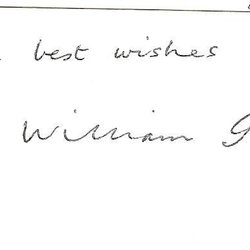 best wishes
William G